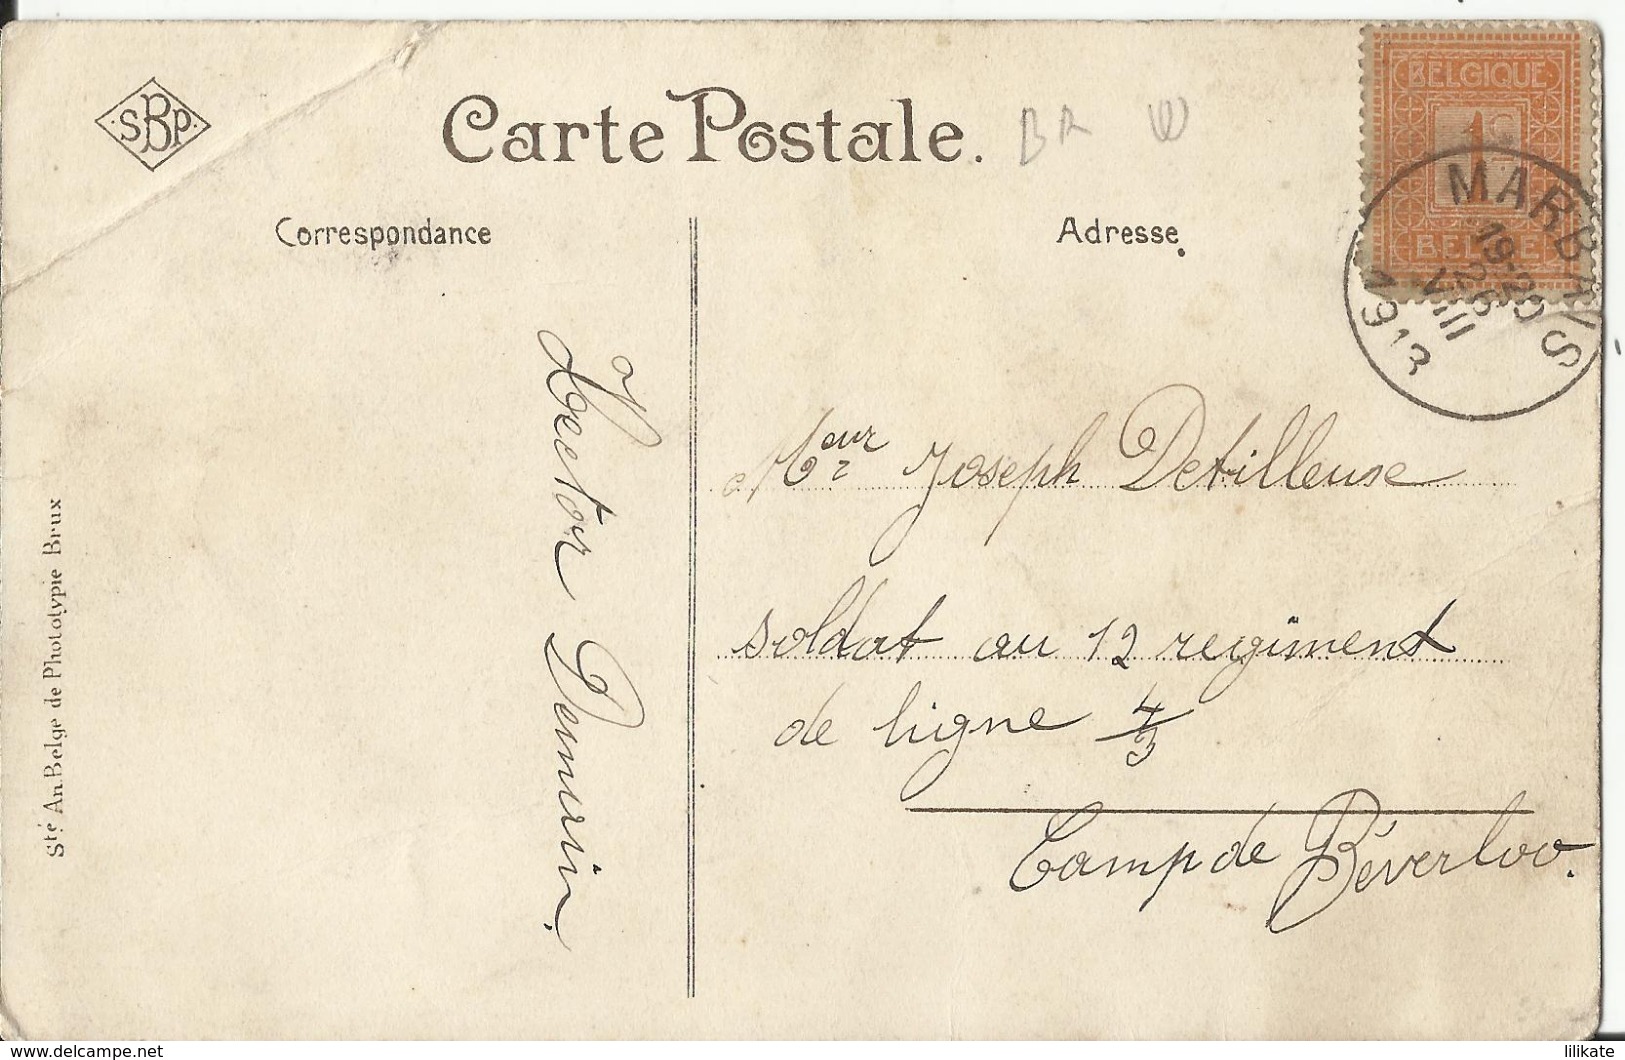 SBP
Carte Postale.
BR W
BELGIQUE
1c
BELGIE
MARBAIS
19-20
26
VIII
1913
Correspondance
Adresse.
Hector Demurin.
Mr Joseph Detilleuse
soldat au 12 regiment
de ligne 4/3
Camp de Béverloo.
Sté An. Belge de Phototypie Brux
www.delcampe.net
lilikate